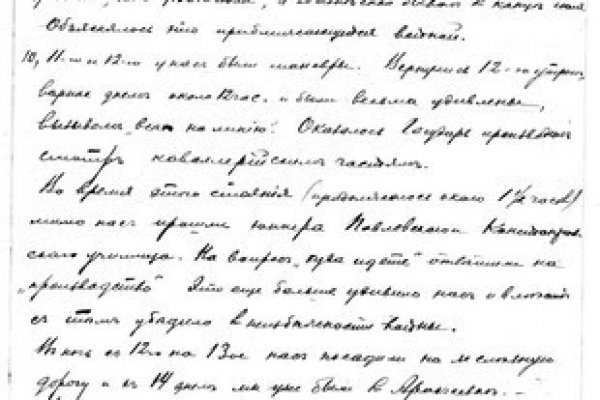 Объяснялось это приближающейся войной.
10, 11-го и 12-го у нас были маневры. Вернулись 12-го утром,
вернее днем около 12 час. и были весьма удивлены,
вызовом "всех на линию". Оказалось Государь производит
смотр кавалерийским частям.
Во время этого стояния (продолжалось около 1½ часов)
мимо нас прошли юнкера Павловского
училища. На вопрос "куда идете" ответили на
"производство". Это еще больше удивило нас и
с тем убедило в неизбежности войны.
В ночь с 12го на 13ое нас посадили на железную
дорогу и 14 днем мы уже были в